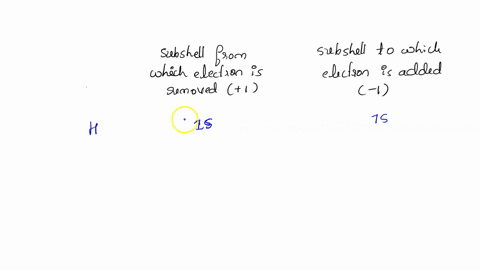 subshell from
which electron is
removed (+1)
subshell to which
electron is added
(-1)
H 1s 1s